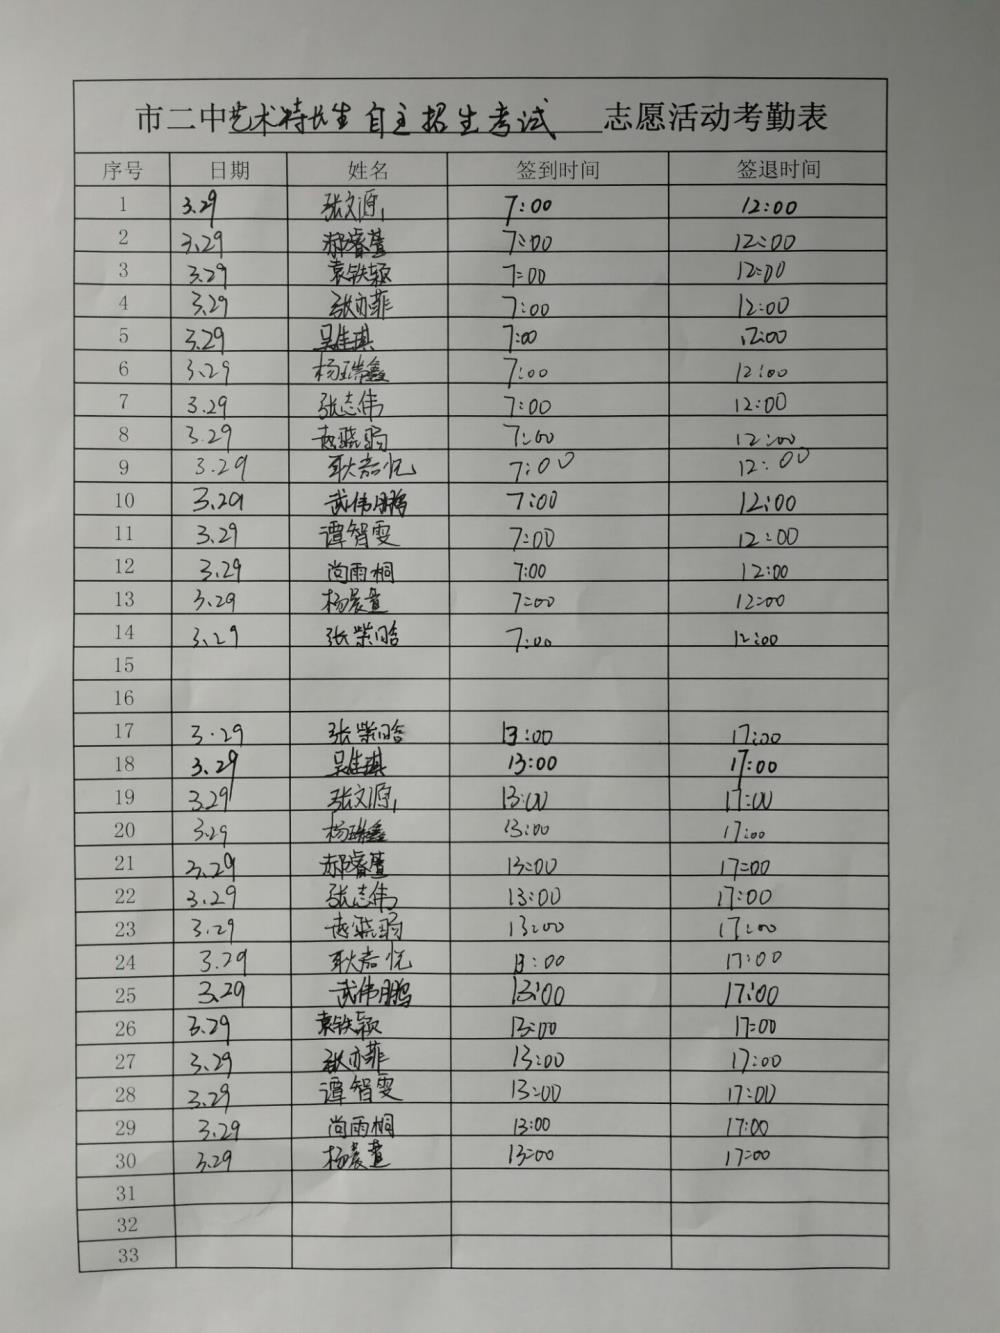 市二中艺术特长生自主招生考试 志愿活动考勤表
序号 日期 姓名 签到时间 签退时间
1 3.29 张文源 7:00 12:00
2 3.29 郝睿萱 7:00 12:00
3 3.29 袁铁颖 7:00 12:00
4 3.29 张亦菲 7:00 12:00
5 3.29 吴佳琪 7:00 12:00
6 3.29 杨瑞鑫 7:00 12:00
7 3.29 张志伟 7:00 12:00
8 3.29 7:00 12:00
9 3.29 耿嘉悦 7:00 12:00
10 3.29 武伟鹏 7:00 12:00
11 3.29 谭智雯 7:00 12:00
12 3.29 尚雨桐 7:00 12:00
13 3.29 杨晨萱 7:00 12:00
14 3.29 张紫晗 7:00 12:00
15
16
17 3.29 张紫晗 13:00 17:00
18 3.29 吴佳琪 13:00 17:00
19 3.29 张文源 13:00 17:00
20 3.29 杨瑞鑫 13:00 17:00
21 3.29 郝睿萱 13:00 17:00
22 3.29 张志伟 13:00 17:00
23 3.29 13:00 17:00
24 3.29 耿嘉悦 13:00 17:00
25 3.29 武伟鹏 13:00 17:00
26 3.29 袁铁颖 13:00 17:00
27 3.29 张亦菲 13:00 17:00
28 3.29 谭智雯 13:00 17:00
29 3.29 尚雨桐 13:00 17:00
30 3.29 杨晨萱 13:00 17:00
31
32
33